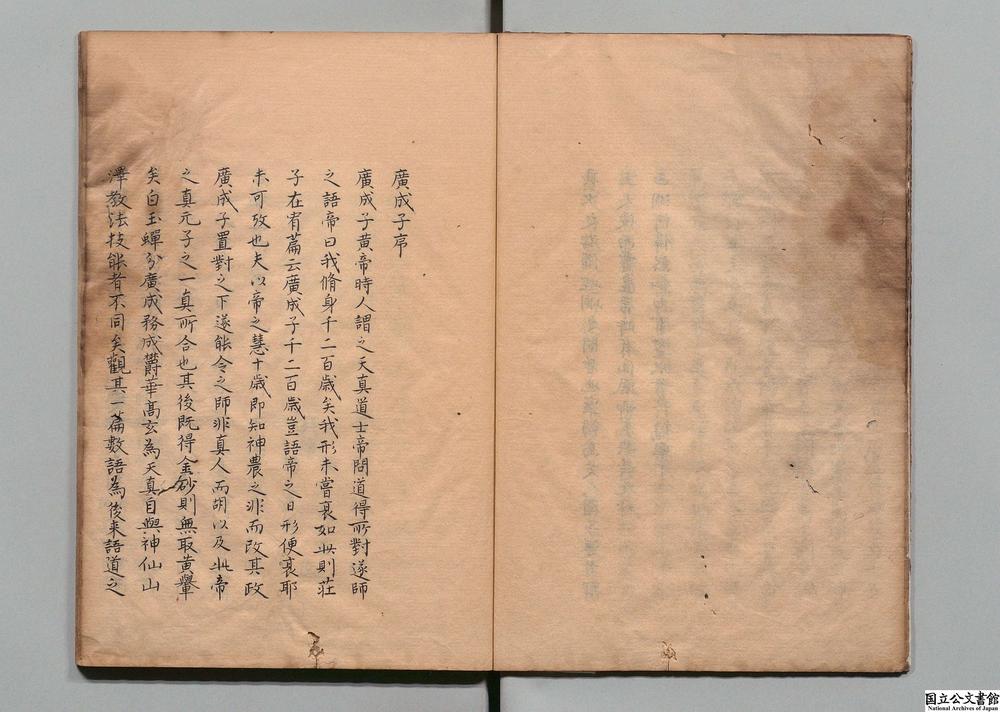 廣成子序
廣成子黃帝時人謂之天真道士帝問道得所對遂師
之語帝曰我脩身千二百歲矣我形未嘗衰如此則莊
子在宥篇云廣成子千二百歲豈語帝之日形便衰耶
未可攷也夫以帝之慧十歲即知神農之非而改其政
廣成子置對之下遂能令之師非真人而胡以及此帝
之真元子之一真所合也其後既得金砂則無取黃輦
矣白玉蟬分廣成務成欝華高玄為天真自與神仙山
澤教法技能者不同矣觀其一篇數語為後来語道之
国立公文書館
National Archives of Japan